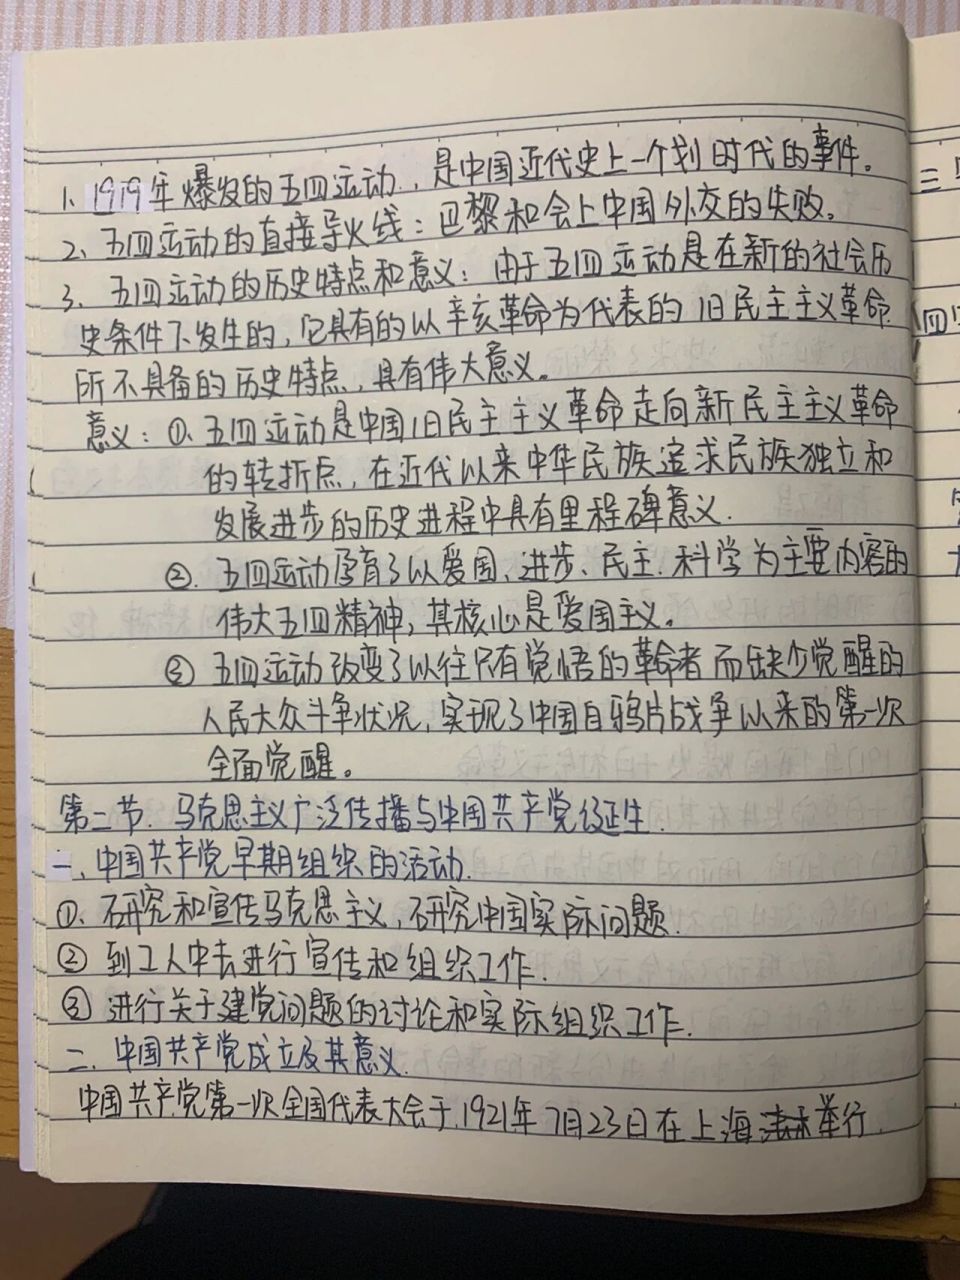 1、1919年爆发的五四运动，是中国近代史上一个划时代的事件。
2、五四运动的直接导火线：巴黎和会上中国外交的失败。
3、五四运动的历史特点和意义：由于五四运动是在新的社会历
史条件下发生的，它具有的以辛亥革命为代表的旧民主主义革命
所不具备的历史特点，具有伟大意义。
意义：①、五四运动是中国旧民主主义革命走向新民主主义革命
的转折点，在近代以来中华民族追求民族独立和
发展进步的历史进程中具有里程碑意义.
②．五四运动孕育了以爱国、进步、民主、科学为主要内容的
伟大五四精神，其核心是爱国主义。
③ 五四运动改变了以往只有觉悟的革命者而缺少觉醒的
人民大众斗争状况，实现了中国自鸦片战争以来的第一次
全面觉醒。
第二节．马克思主义广泛传播与中国共产党诞生．
一、中国共产党早期组织的活动．
①、研究和宣传马克思主义，研究中国实际问题．
② 到工人中去进行宣传和组织工作．
③ 进行关于建党问题的讨论和实际组织工作．
二、中国共产党成立及其意义．
中国共产党第一次全国代表大会于1921年7月23日在上海举行．
三
四